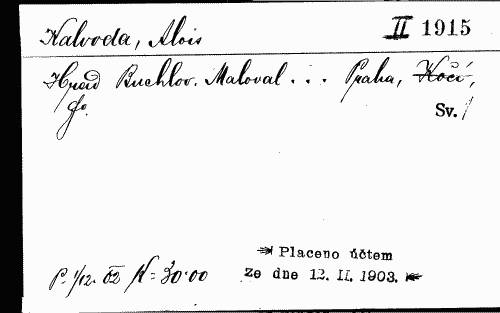 Kalvoda, Alois II 1915
Hrad Buchlov. Maloval . . . Praha, Kočí,
fo. Sv. /
P. 1/12. 02 K = 30·00
Placeno účtem
ze dne 12. II. 1903.